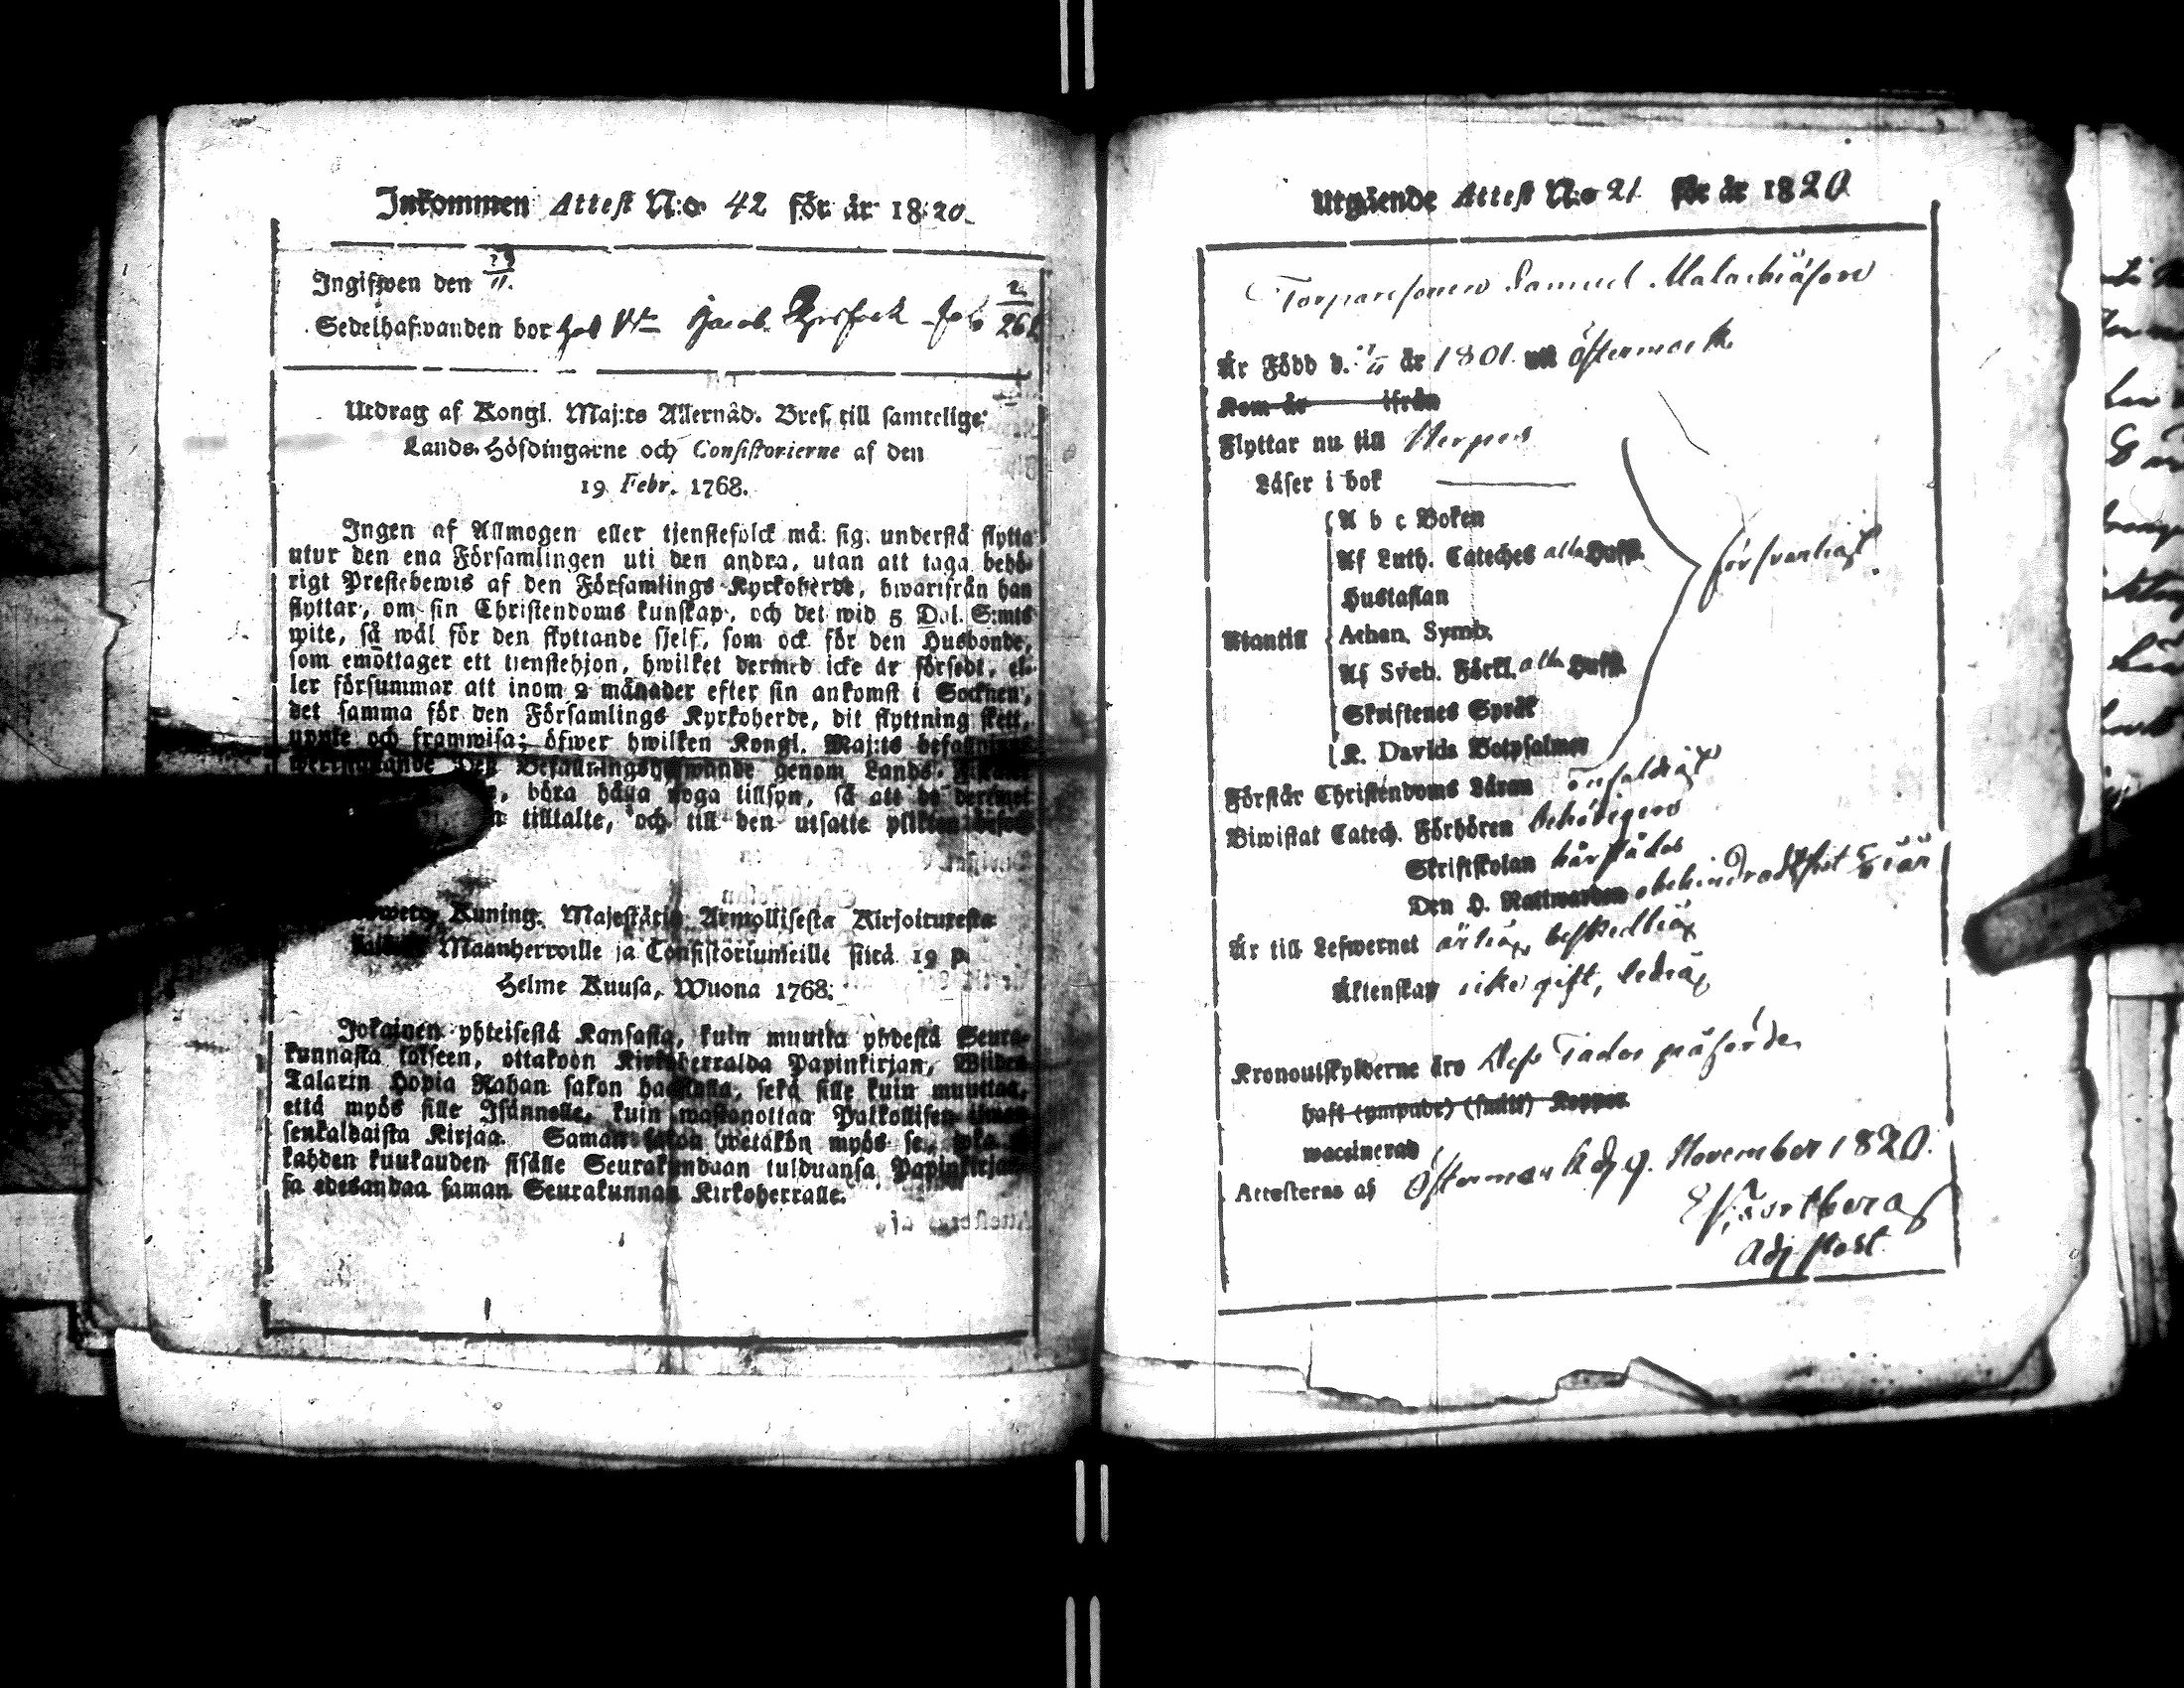 Inkommen Attest N:o 42 för år 1820.
Ingifwen den 29/11.
Sedelhafwanden bor hos Jacob
Utdrag af Kongl. Maj:ts Allernåd. Bref, till samtelige
Lands-Höfdingarne och Consistorierne af den
19 Febr. 1768.
Ingen af Allmogen eller tjenstefolck må sig understå flytta
utur den ena Församlingen uti den andra, utan att taga behö-
rigt Prestebewis af den Församlings Kyrkoherde, hwarifrån han
flyttar, om sin Christendoms kunskap, och det wid 5 Dal. S:mts
wite, så wäl för den flyttande sjelf, som ock för den Husbonde,
som emottager ett tienstehjon, hwilket dermed icke är försedt, el-
ler försummar att inom 2 månader efter sin ankomst i Socknen,
det samma för den Församlings Kyrkoherde, dit flyttning skett,
uppte och framwisa; öfwer hwilken Kongl. Maj:ts befallning
genom Lands-
böra hafwa noga tillsyn, så att de dermed
tilltalte, och till den utsatte plikten
Kuning. Majestätin Armollisesta Kirjoituxesta
Maanherroille ja Consistoriumeille siitä 19 p.
Helme Kuusa, Wuona 1768.
Jokainen yhteisestä Kansasta, kuin muutta yhdestä Seura-
kunnasta toiseen, ottakoon Kirkoherralda Papinkirjan, Wiiden
Talarin Hopia Rahan sakon haastolla, sekä sille kuin muuttaa,
että myös sille Isännälle, kuin wastanottaa Palkollisen ilman
senkaldaista Kirjaa. Saman sakon wetäkön myös se, joka
kahden kuukauden sisälle Seurakundaan tulduansa Papinkirjan-
sa edesandaa saman Seurakunnan Kirkoherralle.
Utgående Attest N:o 21 för år 1820
Torparesonen Samuel Malachiäson
Är Född d. år 1801 uti Östermark
Kom år ifrån
Flyttar nu till Nerpes
Läser i bok
A b c Boken
Af Luth. Cateches alla Hufst.
Hustaflan
försvarligt.
Utantill
Athan. Symb.
Af Sveb. Förkl. alla Hufst.
Skriftenes Språk
K. Davids Botpsalmer
Förstår Christendoms Läran enfaldigt
Biwistat Catech. Förhören behörigen
Skriftskolan härstädes
Den H. Nattwarden obehindrad sist i år
Är till Lefwernet ärlig, beskedlig
Äktenskap icke gift, ledig
Kronoutskylderne äro Dess Fader påförde
haft (ympade) (sjelf) Koppor
waccinerad
Attesteras af Östermark d. 9. November 1820.
Adj. Past.